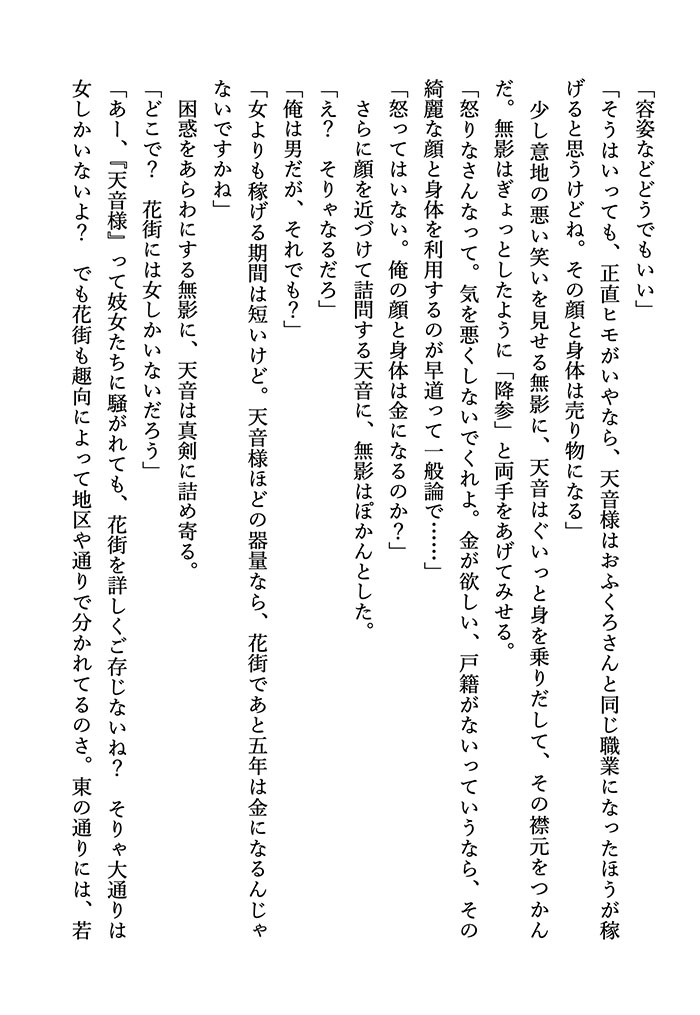 「容姿などどうでもいい」
「そうはいっても、正直ヒモがいやなら、天音様はおふくろさんと同じ職業になったほうが稼
げると思うけどね。その顔と身体は売り物になる」
　少し意地の悪い笑いを見せる無影に、天音はぐいっと身を乗りだして、その襟元をつかん
だ。無影はぎょっとしたように「降参」と両手をあげてみせる。
「怒りなさんなって。気を悪くしないでくれよ。金が欲しい、戸籍がないっていうなら、その
綺麗な顔と身体を利用するのが早道って一般論で……」
「怒ってはいない。俺の顔と身体は金になるのか？」
　さらに顔を近づけて詰問する天音に、無影はぽかんとした。
「え？　そりゃなるだろ」
「俺は男だが、それでも？」
「女よりも稼げる期間は短いけど。天音様ほどの器量なら、花街であと五年は金になるんじゃ
ないですかね」
　困惑をあらわにする無影に、天音は真剣に詰め寄る。
「どこで？　花街には女しかいないだろう」
「あー、『天音様』って妓女たちに騒がれても、花街を詳しくご存じないね？　そりゃ大通りは
女しかいないよ？　でも花街も趣向によって地区や通りで分かれてるのさ。東の通りには、若